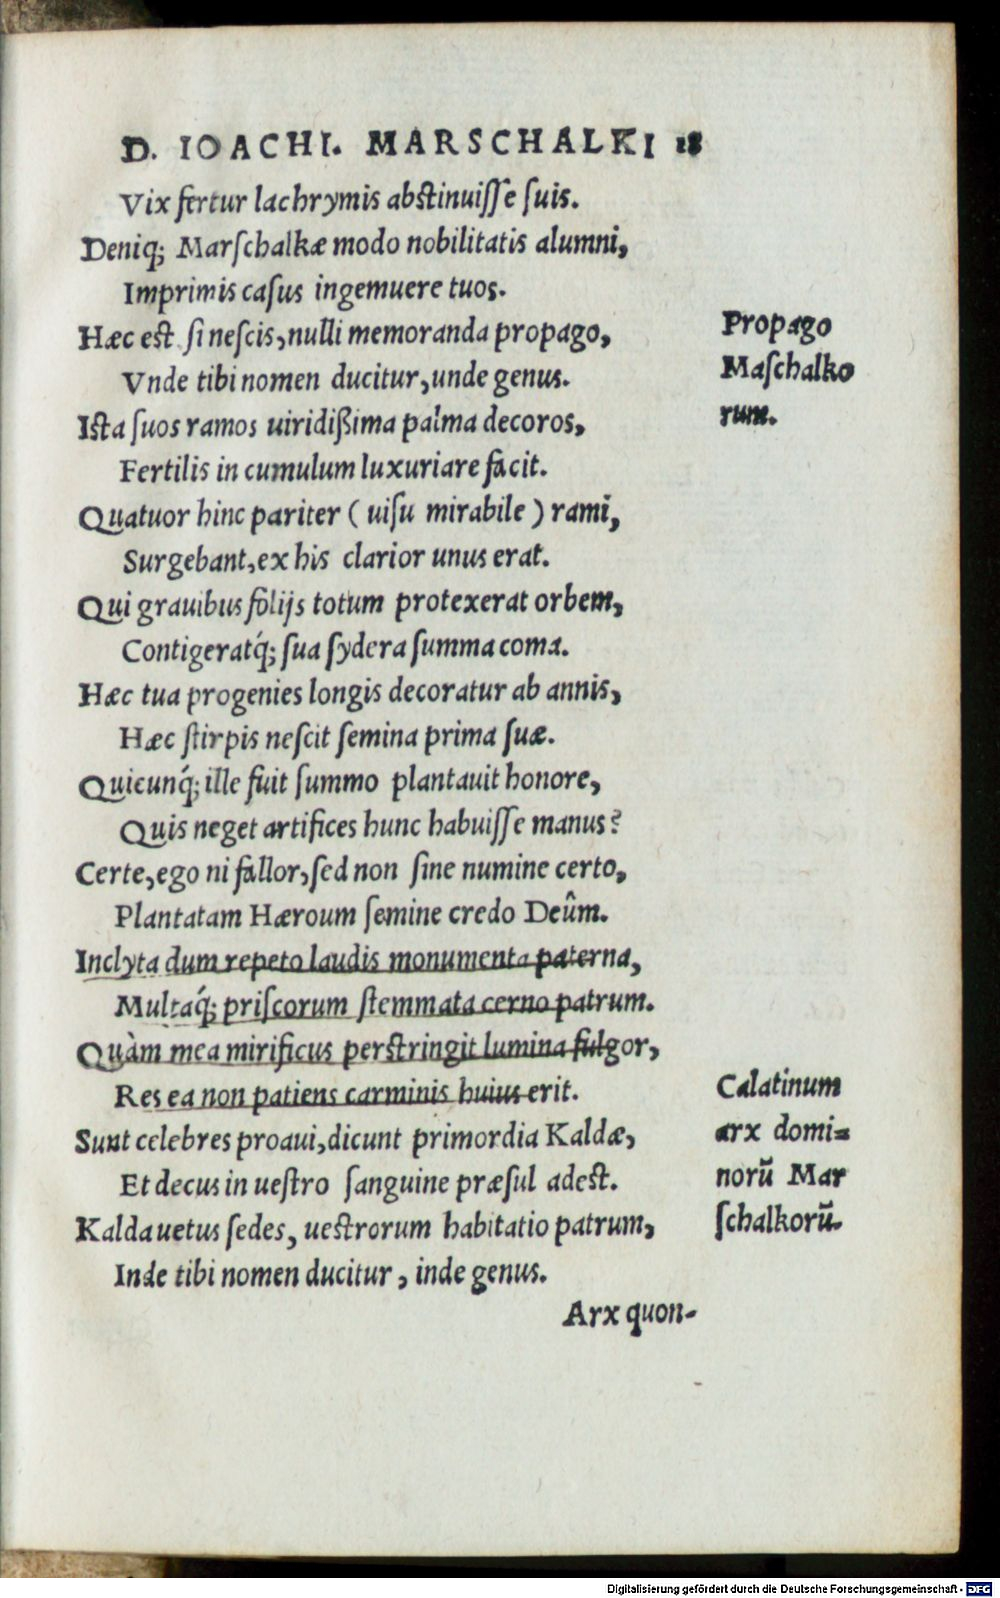 D. IOACHI. MARSCHALKI 18
Vix fertur lachrymis abstinuiſſe ſuis.
Deniq; Marſchalkæ modo nobilitatis alumni,
Imprimis caſus ingemuere tuos.
Hæc est ſi neſcis, nulli memoranda propago,
Vnde tibi nomen ducitur, unde genus.
Ista ſuos ramos uiridißima palma decoros,
Fertilis in cumulum luxuriare facit.
Quatuor hinc pariter ( uiſu mirabile ) rami,
Surgebant, ex his clarior unus erat.
Qui grauibus folijs totum protexerat orbem,
Contigeratq́; ſua ſydera ſumma coma.
Hæc tua progenies longis decoratur ab annis,
Hæc ſtirpis neſcit ſemina prima ſuæ.
Quicunq́; ille fuit ſummo plantauit honore,
Quis neget artifices hunc habuiſſe manus?
Certe, ego ni fallor, ſed non ſine numine certo,
Plantatam Hæroum ſemine credo Deûm.
Inclyta dum repeto laudis monumenta paterna,
Multaq́; priſcorum ſtemmata cerno patrum.
Quàm mea mirificus perstringit lumina fulgor,
Res ea non patiens carminis huius erit.
Sunt celebres proaui, dicunt primordia Kaldæ,
Et decus in uestro ſanguine præſul adest.
Kalda uetus ſedes, uestrorum habitatio patrum,
Inde tibi nomen ducitur, inde genus.
Arx quon-
Propago
Maſchalko
rum.
Calatinum
arx domi=
norũ Mar
ſchalkorũ.
Digitalisierung gefördert durch die Deutsche Forschungsgemeinschaft - DFG